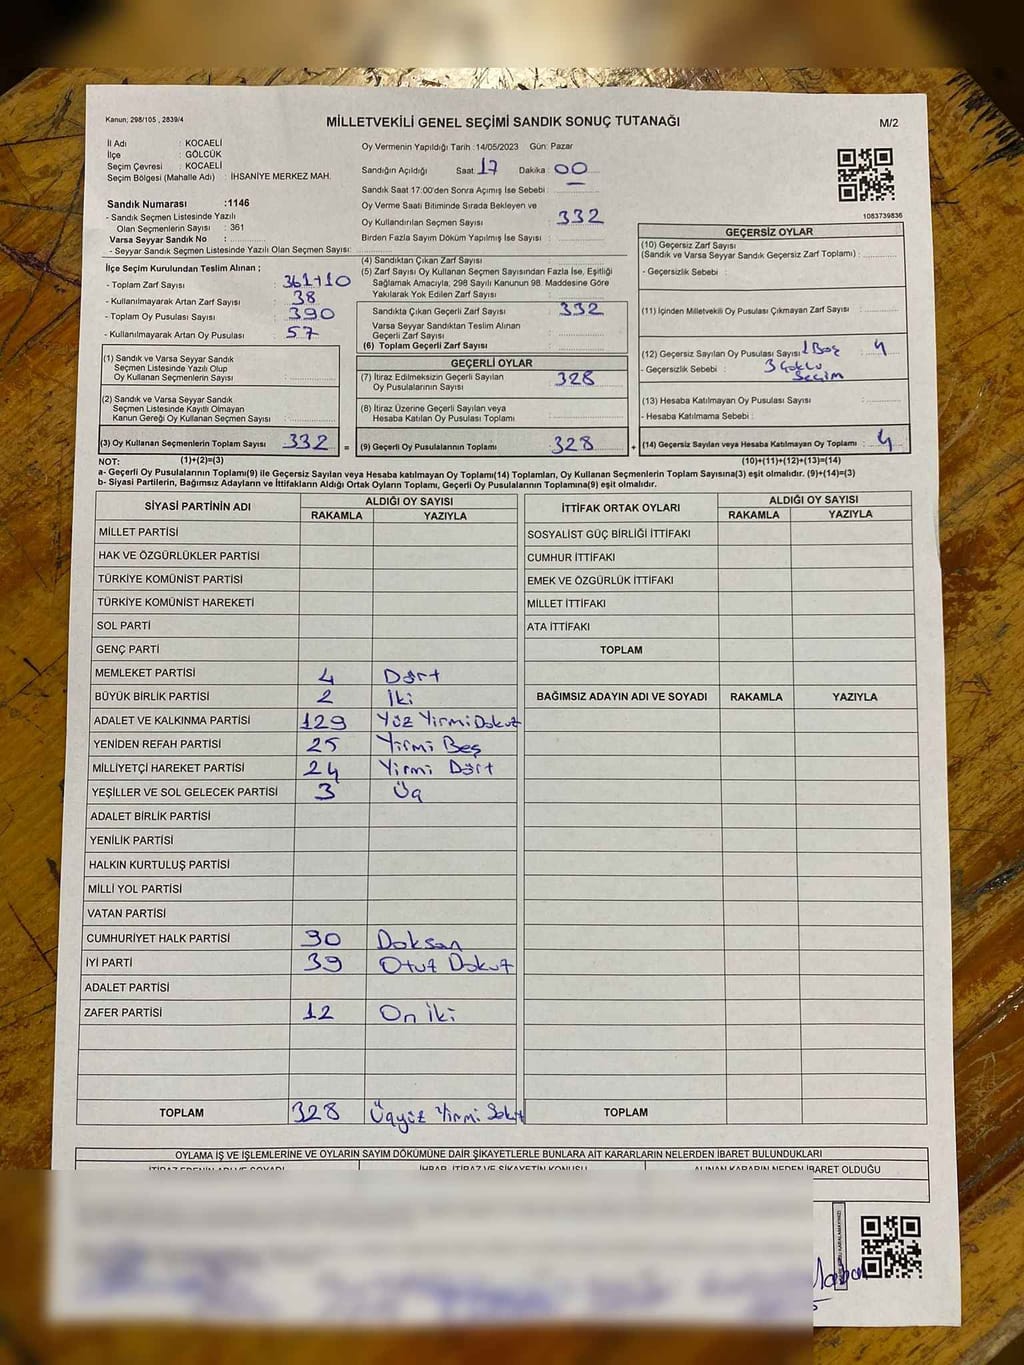 Kanun; 298/105 , 2839/4
MİLLETVEKİLİ GENEL SEÇİMİ SANDIK SONUÇ TUTANAĞI
M/2
İl Adı : KOCAELİ
İlçe : GÖLCÜK
Seçim Çevresi : KOCAELİ
Seçim Bölgesi (Mahalle Adı) : İHSANİYE MERKEZ MAH.
Oy Vermenin Yapıldığı Tarih : 14/05/2023 Gün: Pazar
Sandığın Açıldığı Saat : 17 Dakika : 00
Sandık Saat 17:00'den Sonra Açımış İse Sebebi :
Oy Verme Saati Bitiminde Sırada Bekleyen ve
Oy Kullandırılan Seçmen Sayısı : 332
Birden Fazla Sayım Döküm Yapılmış İse Sayısı :
1083739836
Sandık Numarası :1146
- Sandık Seçmen Listesinde Yazılı
Olan Seçmenlerin Sayısı : 361
Varsa Seyyar Sandık No :
- Seyyar Sandık Seçmen Listesinde Yazılı Olan Seçmen Sayısı:
İlçe Seçim Kurulundan Teslim Alınan ;
- Toplam Zarf Sayısı : 361+10
- Kullanılmayarak Artan Zarf Sayısı : 38
- Toplam Oy Pusulası Sayısı : 390
- Kullanılmayarak Artan Oy Pusulası : 57
(4) Sandıktan Çıkan Zarf Sayısı :
(5) Zarf Sayısı Oy Kullanan Seçmen Sayısından Fazla İse, Eşitliği
Sağlamak Amacıyla, 298 Sayılı Kanunun 98. Maddesine Göre
Yakılarak Yok Edilen Zarf Sayısı :
Sandıkta Çıkan Geçerli Zarf Sayısı : 332
Varsa Seyyar Sandıktan Teslim Alınan
Geçerli Zarf Sayısı :
(6) Toplam Geçerli Zarf Sayısı :
(1) Sandık ve Varsa Seyyar Sandık
Seçmen Listesinde Yazılı Olup
Oy Kullanan Seçmenlerin Sayısı :
(2) Sandık ve Varsa Seyyar Sandık
Seçmen Listesinde Kayıtlı Olmayan
Kanun Gereği Oy Kullanan Seçmen Sayısı :
(3) Oy Kullanan Seçmenlerin Toplam Sayısı : 332 =
(1)+(2)=(3)
GEÇERLİ OYLAR
(7) İtiraz Edilmeksizin Geçerli Sayılan
Oy Pusulalarının Sayısı : 328
(8) İtiraz Üzerine Geçerli Sayılan veya
Hesaba Katılan Oy Pusulası Toplamı :
(9) Geçerli Oy Pusulalarının Toplamı : 328 +
GEÇERSİZ OYLAR
(10) Geçersiz Zarf Sayısı
(Sandık ve Varsa Seyyar Sandık Geçersiz Zarf Toplamı) :
- Geçersizlik Sebebi :
(11) İçinden Milletvekili Oy Pusulası Çıkmayan Zarf Sayısı :
(12) Geçersiz Sayılan Oy Pusulası Sayısı : 1 Boş 4
- Geçersizlik Sebebi : 3 Çoklu
Seçim
(13) Hesaba Katılmayan Oy Pusulası Sayısı :
- Hesaba Katılmama Sebebi :
(14) Geçersiz Sayılan veya Hesaba Katılmayan Oy Toplamı : 4
(10)+(11)+(12)+(13)=(14)
NOT:
a- Geçerli Oy Pusulalarının Toplamı(9) ile Geçersiz Sayılan veya Hesaba katılmayan Oy Toplamı(14) Toplamları, Oy Kullanan Seçmenlerin Toplam Sayısına(3) eşit olmalıdır. (9)+(14)=(3)
b- Siyasi Partilerin, Bağımsız Adayların ve İttifakların Aldığı Ortak Oyların Toplamı, Geçerli Oy Pusulalarının Toplamına(9) eşit olmalıdır.
SİYASİ PARTİNİN ADI ALDIĞI OY SAYISI
RAKAMLA YAZIYLA
MİLLET PARTİSİ
HAK VE ÖZGÜRLÜKLER PARTİSİ
TÜRKİYE KOMÜNİST PARTİSİ
TÜRKİYE KOMÜNİST HAREKETİ
SOL PARTİ
GENÇ PARTİ
MEMLEKET PARTİSİ 4 Dört
BÜYÜK BİRLİK PARTİSİ 2 İki
ADALET VE KALKINMA PARTİSİ 129 Yüz Yirmi Dokuz
YENİDEN REFAH PARTİSİ 25 Yirmi Beş
MİLLİYETÇİ HAREKET PARTİSİ 24 Yirmi Dört
YEŞİLLER VE SOL GELECEK PARTİSİ 3 Üç
ADALET BİRLİK PARTİSİ
YENİLİK PARTİSİ
HALKIN KURTULUŞ PARTİSİ
MİLLİ YOL PARTİSİ
VATAN PARTİSİ
CUMHURİYET HALK PARTİSİ 90 Doksan
İYİ PARTİ 39 Otuz Dokuz
ADALET PARTİSİ
ZAFER PARTİSİ 12 On iki
TOPLAM 328 Üçyüz Yirmi Sekiz
İTTİFAK ORTAK OYLARI ALDIĞI OY SAYISI
RAKAMLA YAZIYLA
SOSYALİST GÜÇ BİRLİĞİ İTTİFAKI
CUMHUR İTTİFAKI
EMEK VE ÖZGÜRLÜK İTTİFAKI
MİLLET İTTİFAKI
ATA İTTİFAKI
TOPLAM
BAĞIMSIZ ADAYIN ADI VE SOYADI RAKAMLA YAZIYLA
TOPLAM
OYLAMA İŞ VE İŞLEMLERİNE VE OYLARIN SAYIM DÖKÜMÜNE DAİR ŞİKAYETLERLE BUNLARA AİT KARARLARIN NELERDEN İBARET BULUNDUKLARI
İTİRAZ EDENİN ADI VE SOYADI İHBAR, İTİRAZ VE ŞİKAYETİN KONUSU ALINAN KARARIN NEDEN İBARET OLDUĞU